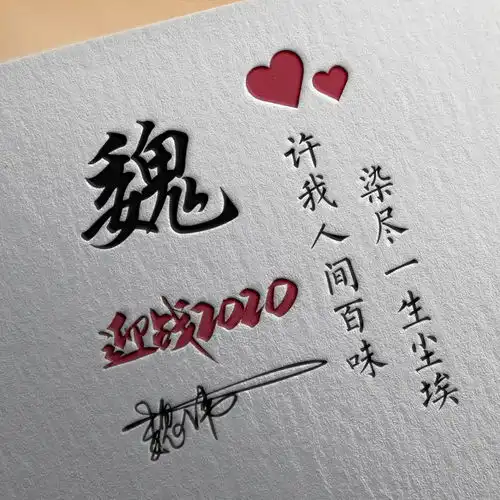 魏
迎战2020
染尽一生尘埃
许我人间百味